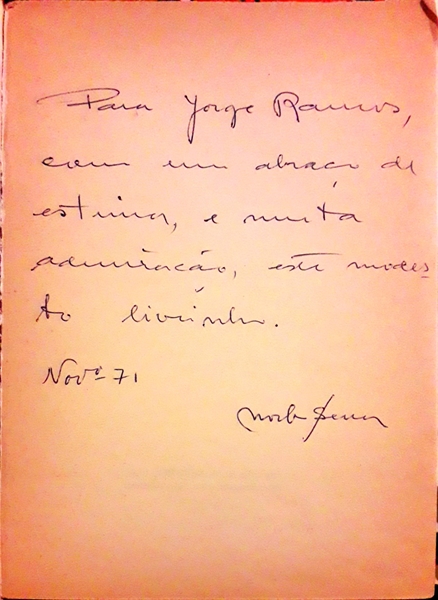 Para Jorge Ramos,
com um abraço de
estima, e muita
admiração, este modes-
to livrinho.
Novº 71